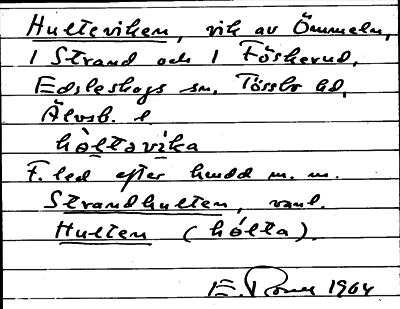 Hulteviken, vik av Ömmeln,
1 Strand och 1 Föskerud,
Edsleskogs sn, Tössbo hd,
Älvsb. l
hòltavika
F. led efter hmdd m. m.
Strandhulten, vanl.
Hulten (hólta).
E. 1964